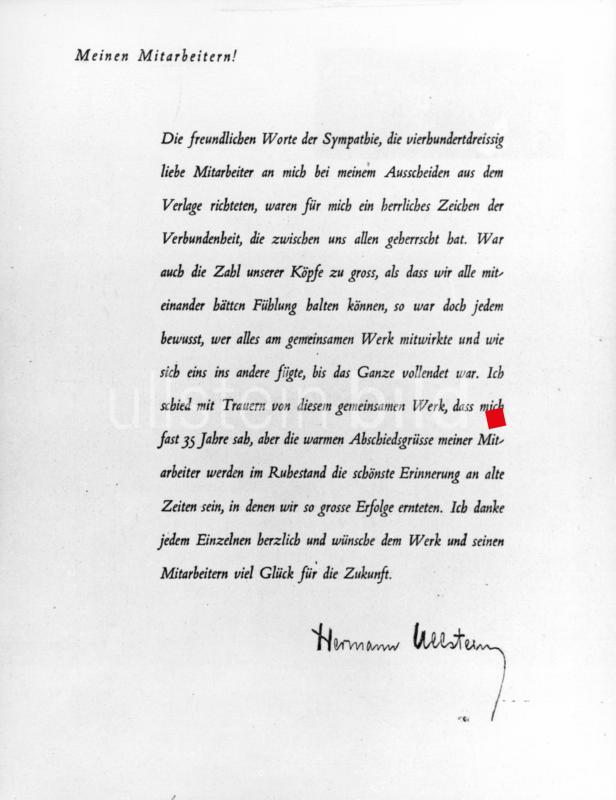 Meinen Mitarbeitern!
Die freundlichen Worte der Sympathie, die vierhundertdreissig
liebe Mitarbeiter an mich bei meinem Ausscheiden aus dem
Verlage richteten, waren für mich ein herrliches Zeichen der
Verbundenheit, die zwischen uns allen geherrscht hat. War
auch die Zahl unserer Köpfe zu gross, als dass wir alle mit-
einander hätten Fühlung halten können, so war doch jedem
bewusst, wer alles am gemeinsamen Werk mitwirkte und wie
sich eins ins andere fügte, bis das Ganze vollendet war. Ich
schied mit Trauern von diesem gemeinsamen Werk, dass mich
fast 35 Jahre sah, aber die warmen Abschiedsgrüsse meiner Mit-
arbeiter werden im Ruhestand die schönste Erinnerung an alte
Zeiten sein, in denen wir so grosse Erfolge ernteten. Ich danke
jedem Einzelnen herzlich und wünsche dem Werk und seinen
Mitarbeitern viel Glück für die Zukunft.
Hermann Ullstein
ullstein bild